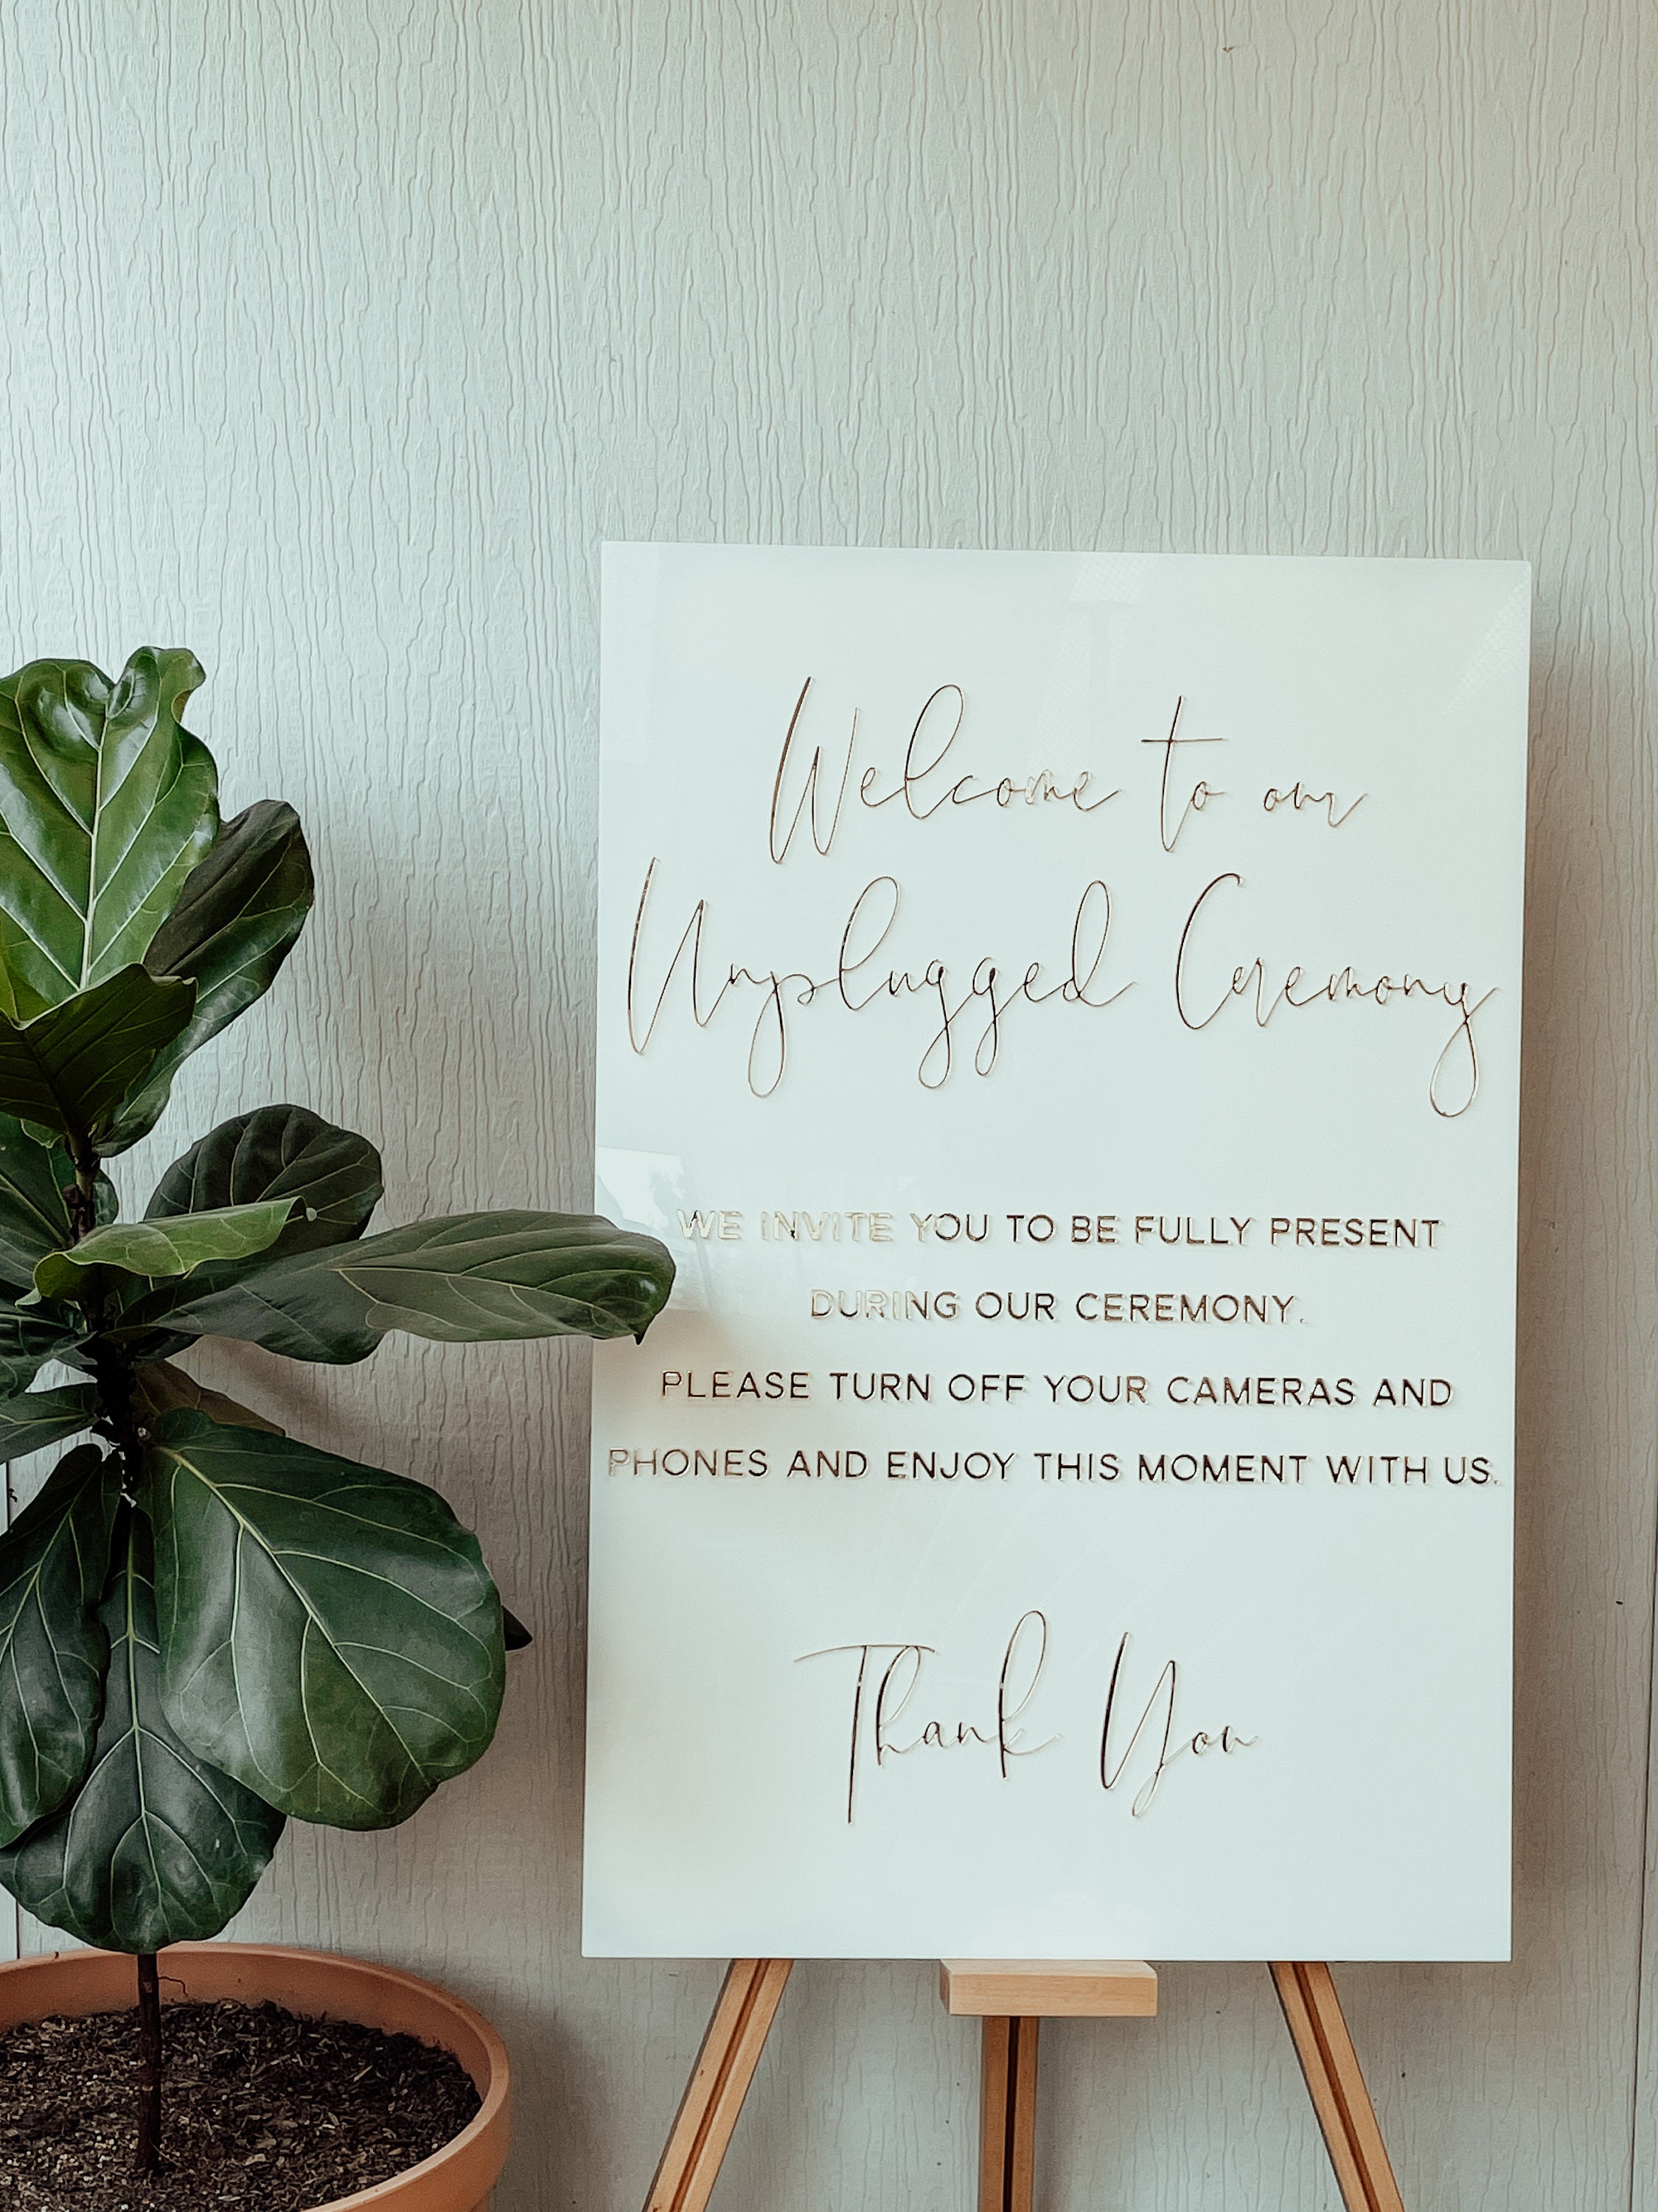 Welcome to our
Unplugged Ceremony
WE INVITE YOU TO BE FULLY PRESENT
DURING OUR CEREMONY.
PLEASE TURN OFF YOUR CAMERAS AND
PHONES AND ENJOY THIS MOMENT WITH US.
Thank You